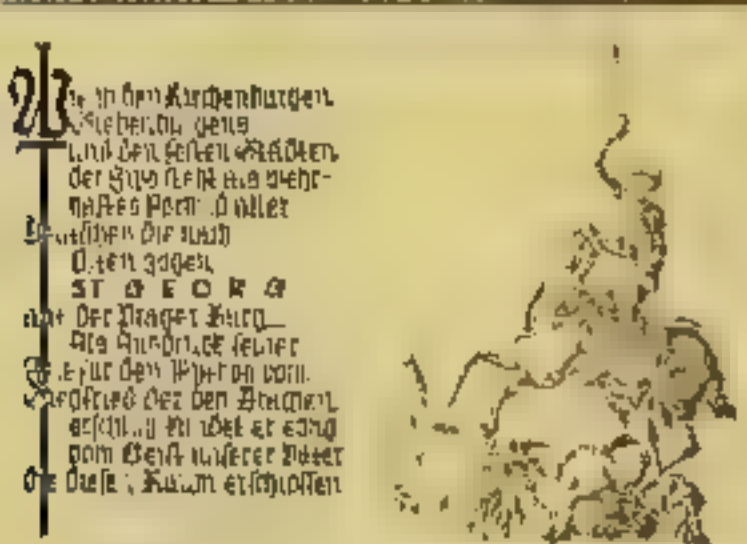 in den Kirchenburgen
Siebenbürgens
und den festen Städten
der Zips steht als wehr-
haftes aller
Deutschen die nach
Osten zogen
ST GEORG
auf der Prager Burg
Als Ausdruck seiner
für den vom
Siegfried der den Drachen
erschlug kündet er ewig
vom Geist unserer Väter
die diesen Raum erschlossen